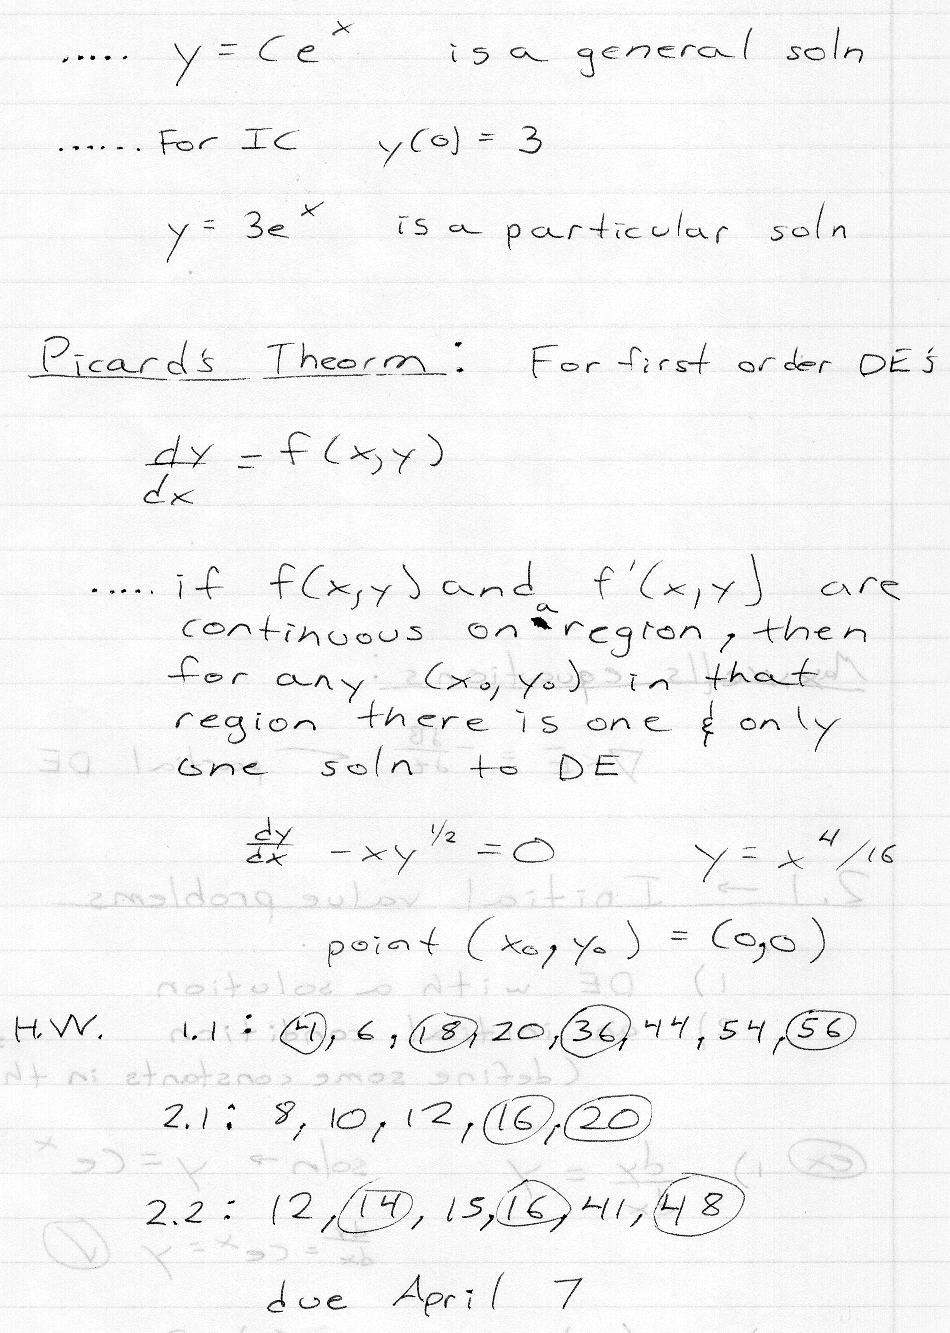 ..... y = Ce^x is a general soln
...... For IC y(0) = 3
y = 3e^x is a particular soln
Picard's Theorm : For first order DE's
dy/dx = f(x,y)
..... if f(x,y) and f'(x,y) are
continuous on a region, then
for any (x₀, y₀) in that
region there is one & only
one soln to DE
dy/dx - xy^1/2 = 0 y = x^4/16
point (x₀, y₀) = (0,0)
H.W. 1.1 : 4, 6, 18, 20, 36, 44, 54, 56
2.1 : 8, 10, 12, 16, 20
2.2 : 12, 14, 15, 16, 41, 48
due April 7